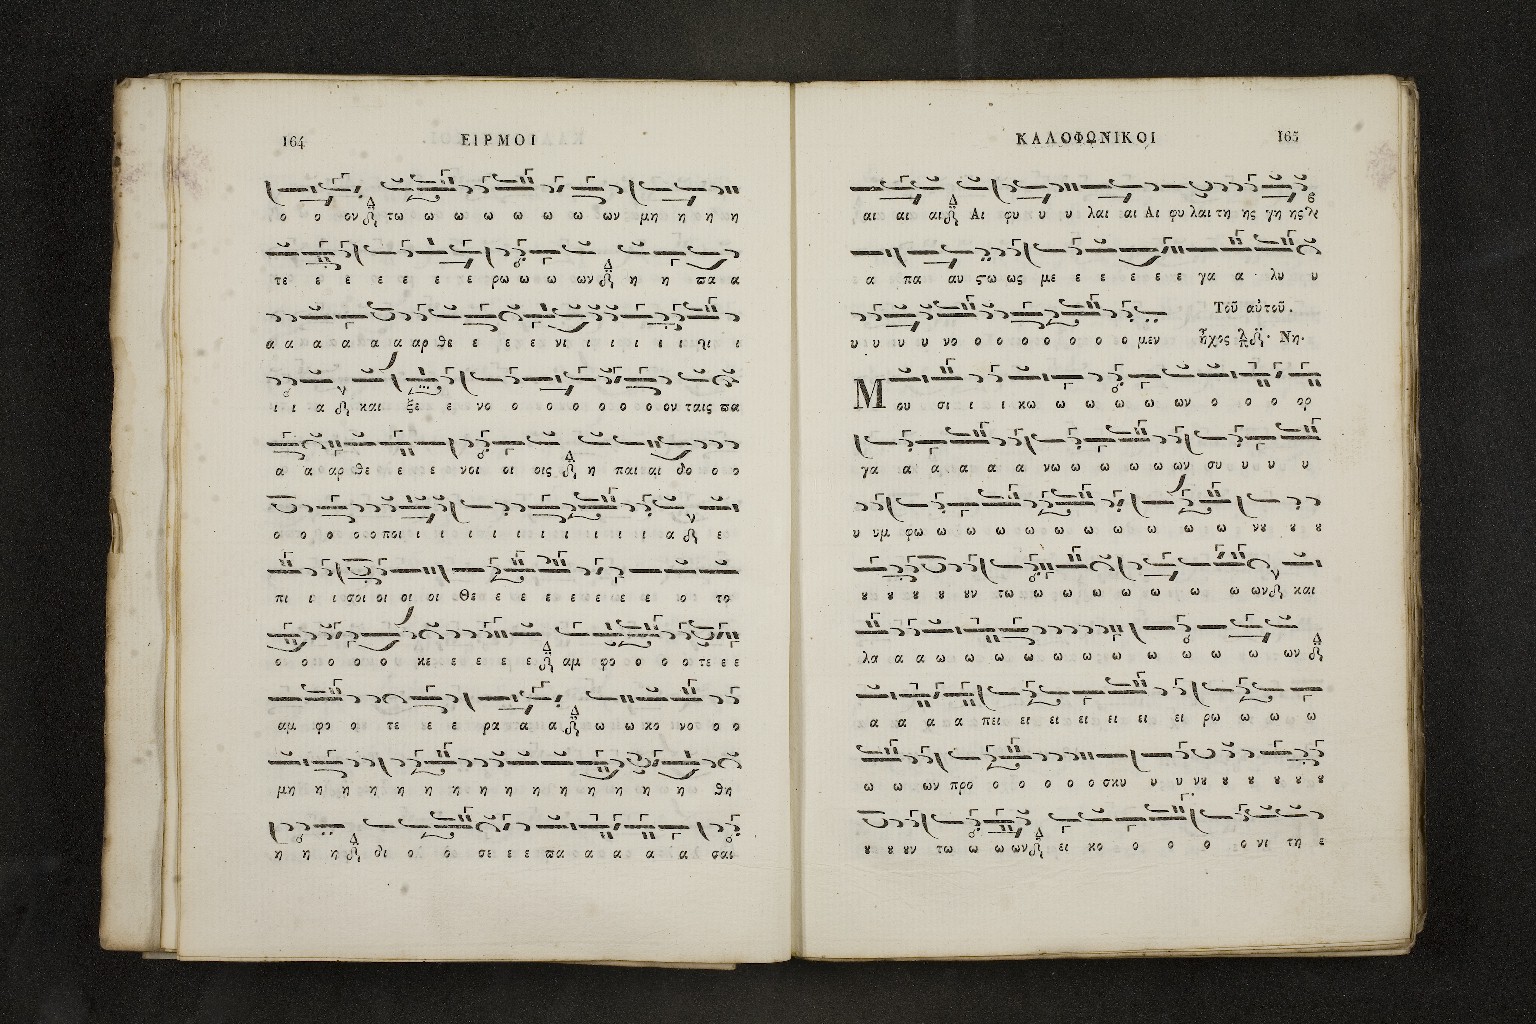 164
ΕΙΡΜΟΙ
ο ο ον τω ω ω ω ω ω ω ων μη η η η
τε ε ε ε ε ε ε ρω ω ω ων η η ϖα α
α α α α α α αρ θε ε ε ε νι ι ι ι ι ι ι
ι ι α και ξε ε νο ο ο ο ο ο ο ον ταις ϖα
α α αρ θε ε ε νοι οι οις η παι αι δο ο ο
ο ο ο ο ο ποι ι ι ι ι ι ι ι ι ι α ε
πι ι ι σοι οι οι οι Θε ε ε ε ε ε ε ε ο το
ο ο ο ο ο κε ε ε ε ε αμ φο ο ο ο τε ε ε
αμ φο ο τε ε ε ρα α α ω ω κο νο ο ο
μη η η η η η η η η η η η η η η θη
η η η δι ο ο σε ε ε ϖα α α α α α σαι
ΚΑΛΟΦΩΝΙΚΟΙ
165
αι αι αι Αι φυ υ υ λαι αι Αι φυ λαι τη ης γη ης
α πα αυ ϛω ως με ε ε ε ε ε γα α λυ υ
υ υ υ υ νο ο ο ο ο ο ο ο μεν
Τοῦ αὐτοῦ.
ἦχος Νη.
Μου σι ι ι κω ω ω ω ω ων ο ο ο ορ
γα α α α α α νω ω ω ω ω ων συ υ υ υ
υ υμ φω ω ω ω ω ω ω ω ω ω ω νȣ ȣ ȣ
ȣ ȣ ȣ ȣ ȣν τω ω ω ω ω ω ω ω ω ων και
λα α α ω ω ω ω ω ω ω ω ω ω ω ων
α α α α πει ει ει ει ει ει ει ρω ω ω ω
ω ω ων προ ο ο ο ο ο σκυ υ υ νȣ ȣ ȣ ȣ ȣ
ȣ ȣ ȣν τω ω ω ων ει κο ο ο ο ο νι τη ε